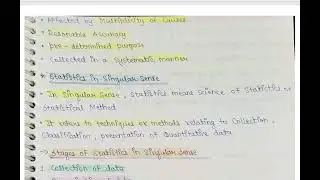 Affected by Multiplicity of Causes
• Reasonable Accuracy
• pre-determined purpose
• Collected in a Systematic manner
• Statistics in Singular Sense
• In Singular Sense, Statistics means Science of Statistics or
Statistical Method
• It refers to techniques or methods relating to Collection,
Classification, presentation of Quantitative data
→ Stages of Statistics in Singular Sense
1. Collection of data